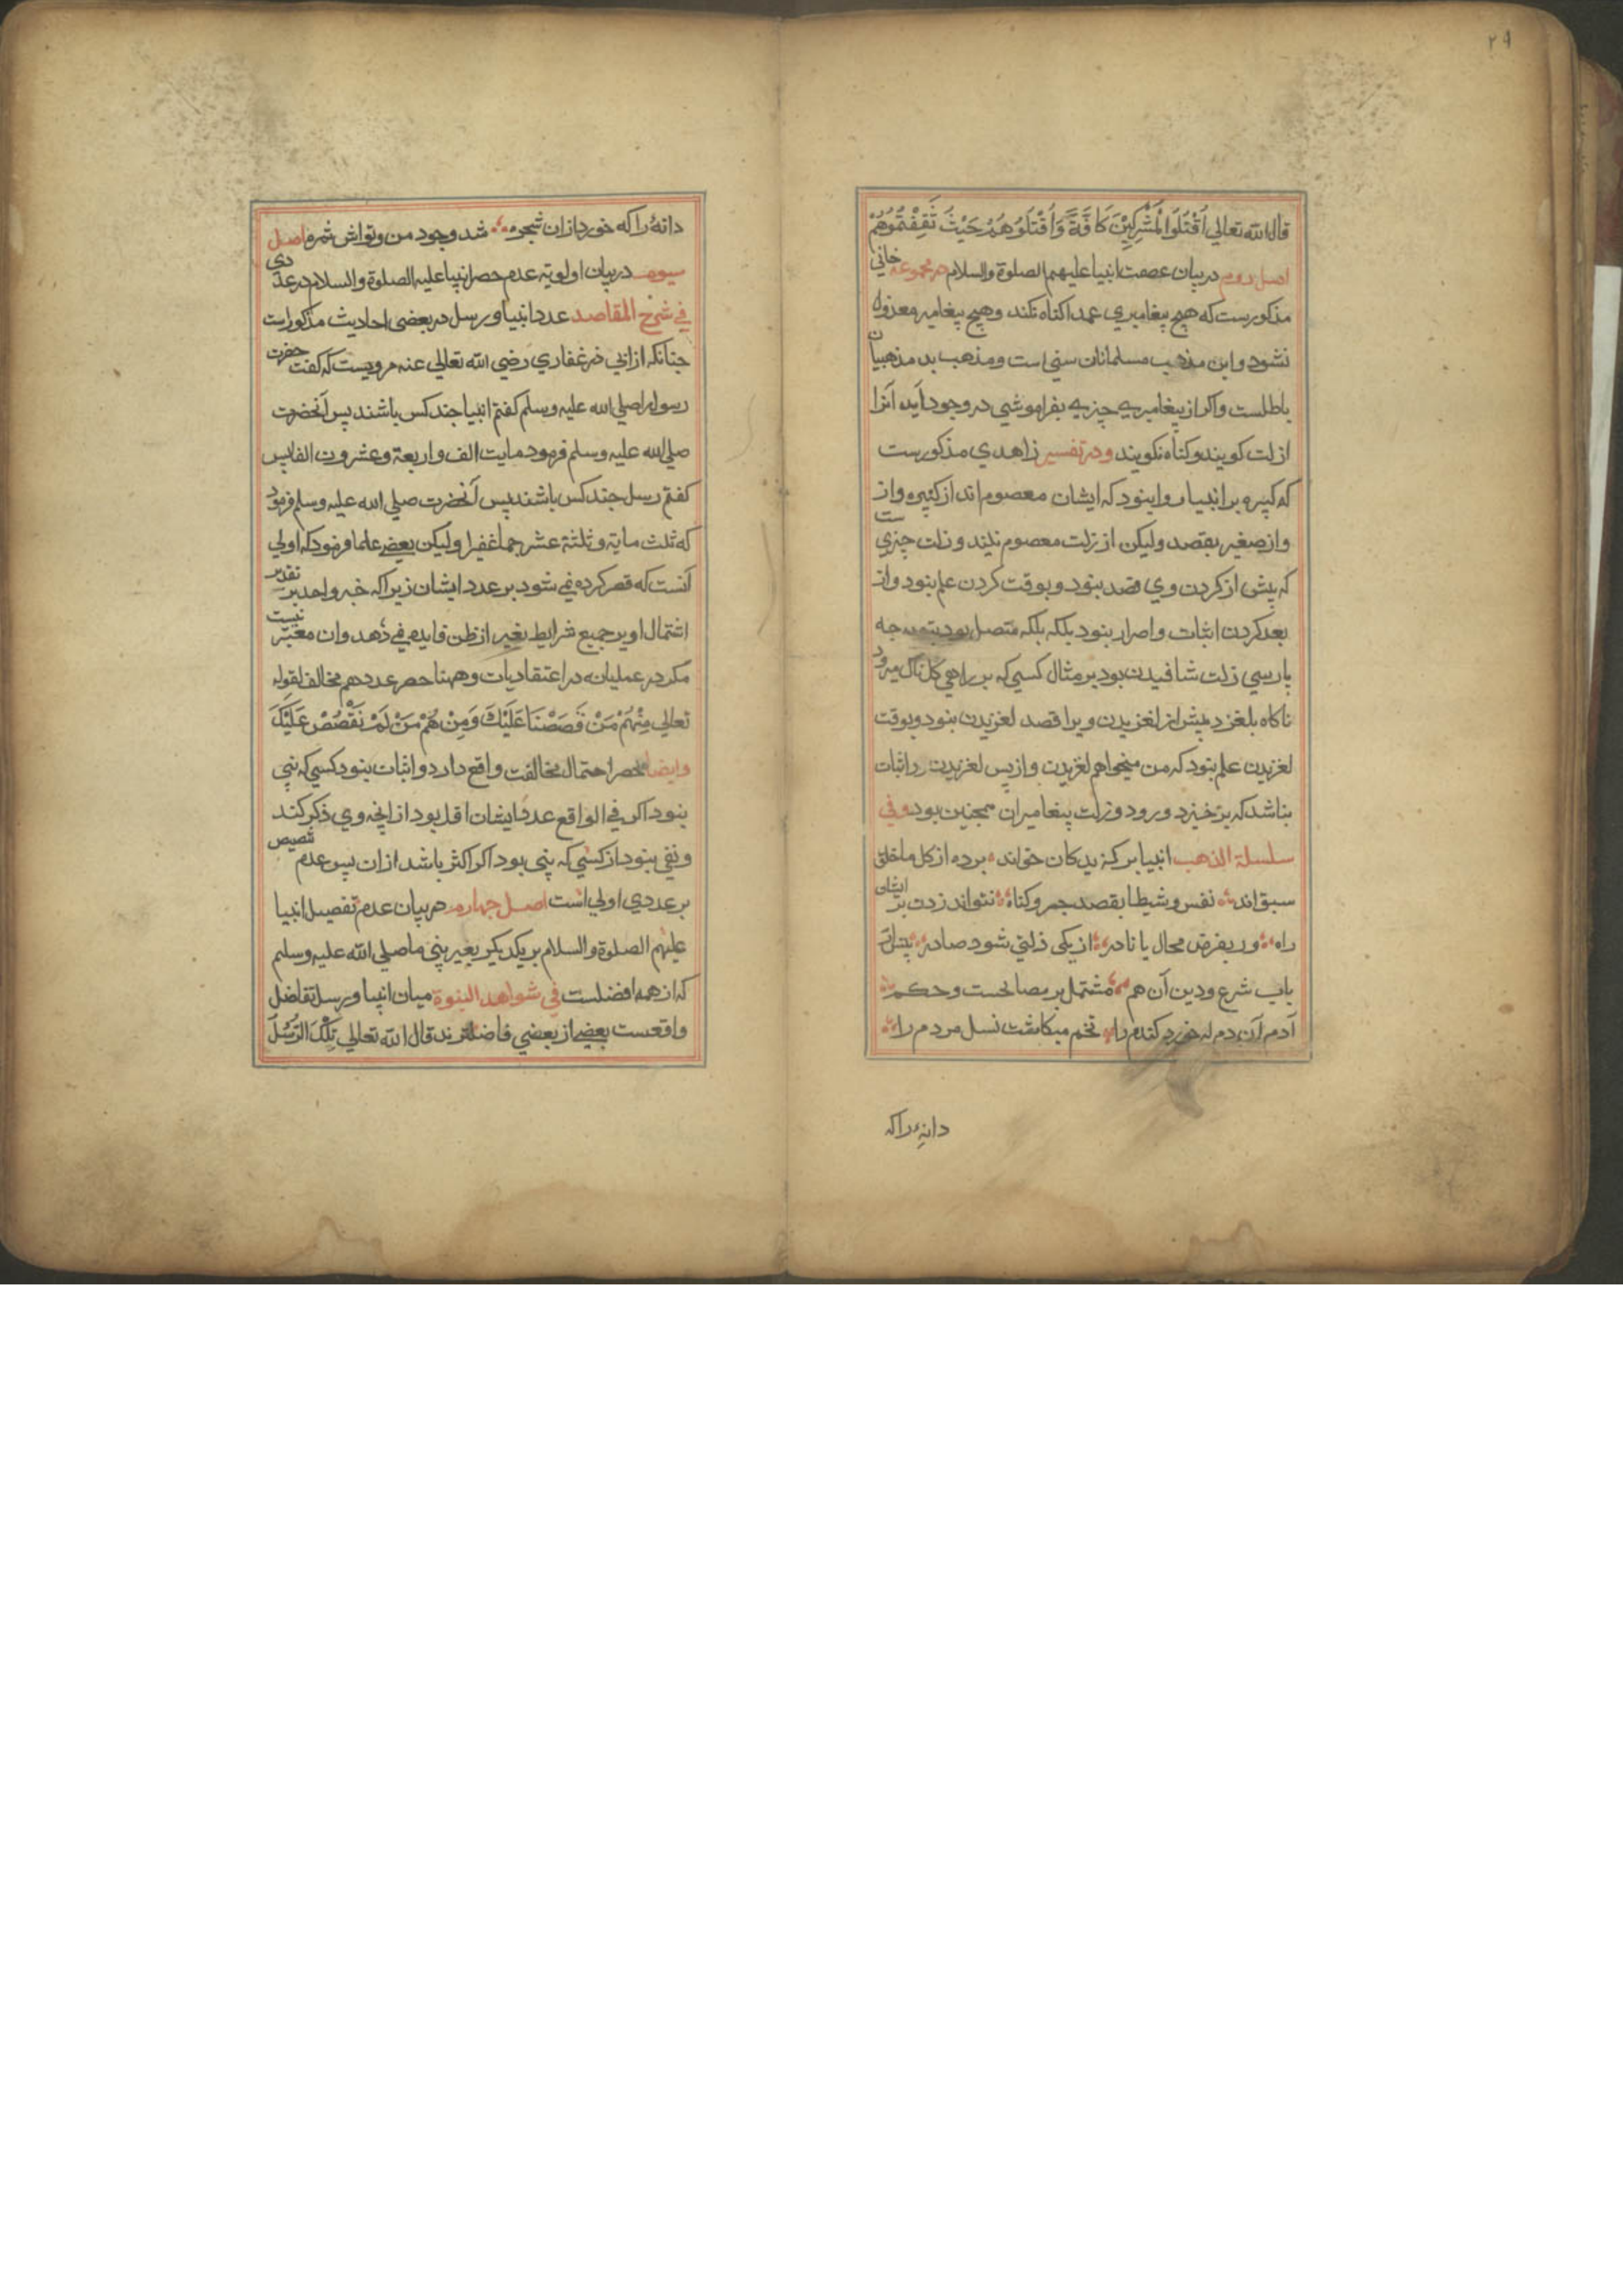 ۲۹
قال الله تعالی اُقْتُلُوا الْمُشْرِکِیْنَ کَافَّةً وَاُقْتُلُوْهُمْ حَیْثُ ثَقِفْتُمُوْهُمْ
اصل دوم در بیان عصمت انبیا علیهم الصلوة والسلام در مجموعه خانی
مذکورست که هیچ پیغامبری عمدا کناه نکند وهیچ پیغامبر معزول
نشود و این مذهب مسلمانان سنی است ومذهب بد مذهبیان
باطلست واکر از پیغامبری چیزی بفراموشی در وجود اید آنرا
ازلت کویند وکناه نکویند ودر تفسیر زاهدی مذکورست
که کبیره بر انبیا روا بنود که ایشان معصوم اند از کبیره واز
واز صغیر بقصد ولیکن از زلت معصوم نیند وزلت چیزی ست
که پیش از کردن وی قصد بنود و بوقت کردن علم بنود واز
بعد کردن اثبات واصرار بنود بلکه بلکه متصل بود بتوبه جه
پارسی زلت شافیدن بود بر مثال کسی که بر راهی کل ناک میرود
ناکاه بلغزد پیش از لغزیدن ویرا قصد لغزیدن بنود وبوقت
لغزیدن علم بنود که من میخواهم لغزیدن واز پس لغزیدن را اثبات
بناشد که برخیزد ورود وزلت پیغامبران همجنین بود وفی
سلسلة الذهب انبیا بر کزیدکان خواند برده از کل ما خلق
سبق اند نفس وشیطا بقصد جرم وکناه نتواند زدن بر ایشان
راه ور بفرض محال یا نادر از یکی ذلتی شود صادر
باب شرع ودین آن هم مشتمل بر مصالحست وحکم
آدم آن دم که خورد کندم را تخم میکاشت نسل مردم را
دانهٔ راکه
دانهٔ راکه خورد ازان شجره شد وجود من وتواش ثمره اصل
سیوم در بیان اولویة عدم حصر انبیا علیه الصلوة والسلام در عددی
فی شرح المقاصد عدد انبیا ورسل در بعضی احادیث مذکوراست
جنانکه از ابی ذر غفاری رضی الله تعالی عنه مرویست که کفت حضرت
رسول را صلی الله علیه وسلم کفتم انبیا جند کس باشند پس آنحضرت
صلی الله علیه وسلم فرمود مایت الف واربعة وعشرون الفا پس
کفتم رسل جند کس باشند پس آنحضرت صلی الله علیه وسلم فرمود
که ثلث مایة وثلثة عشر جما غفیرا ولیکن بعضی علما فرمود که اولی
آنست که قصر کرده نمی شود بر عدد ایشان زیرا که خبر واحد بر تقدیر
اشتمال او بر جمیع شرایط بغیر از ظن فایده نمی دهد وان معتبر نیست
مکر در عملیات نه در اعتقادیات وههنا حصر عدد هم مخالف لقوله
تعالی مِنْهُمْ مَنْ قَصَصْنَا عَلَیْكَ وَمِنْ هُمْ مَنْ لَمْ نَقْصُصْ عَلَیْكَ
وایضا حصر احتمال مخالفت واقع دارد واثبات بنود کسی که نبی
بنود اکر فی الواقع عدد ایشان اقل بود از انچه وی ذکر کند
ونفی بنود از کسی که بنی بود اکر اکثر باشد ازان پس عدم تنصیص
بر عددی اولی است اصل جهارم در بیان عدم تفصیل انبیا
علیهم الصلوة والسلام بر یکدیکر بغیر بنی ما صلی الله علیه وسلم
که از همه افضلست فی شواهد النبوة میان انبیا ورسل تفاضل
واقعست بعضی از بعضی فاضلترند قال الله تعالی تِلْكَ الرُّسُلُ